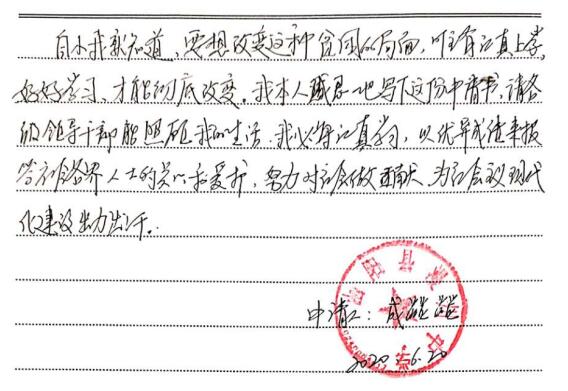 自小我就知道，要想改变这种贫困的局面，唯有认真上学，
好好学习，才能彻底改变。我本人诚恳地写下这份申请书，请各
级领导干部能照顾我的生活，我必将认真学习，以优异成绩来报
答社会各界人士的关心和爱护，努力对社会做贡献，为社会主义现代
化建设出力出汗。
申请人：成
2020.6.20